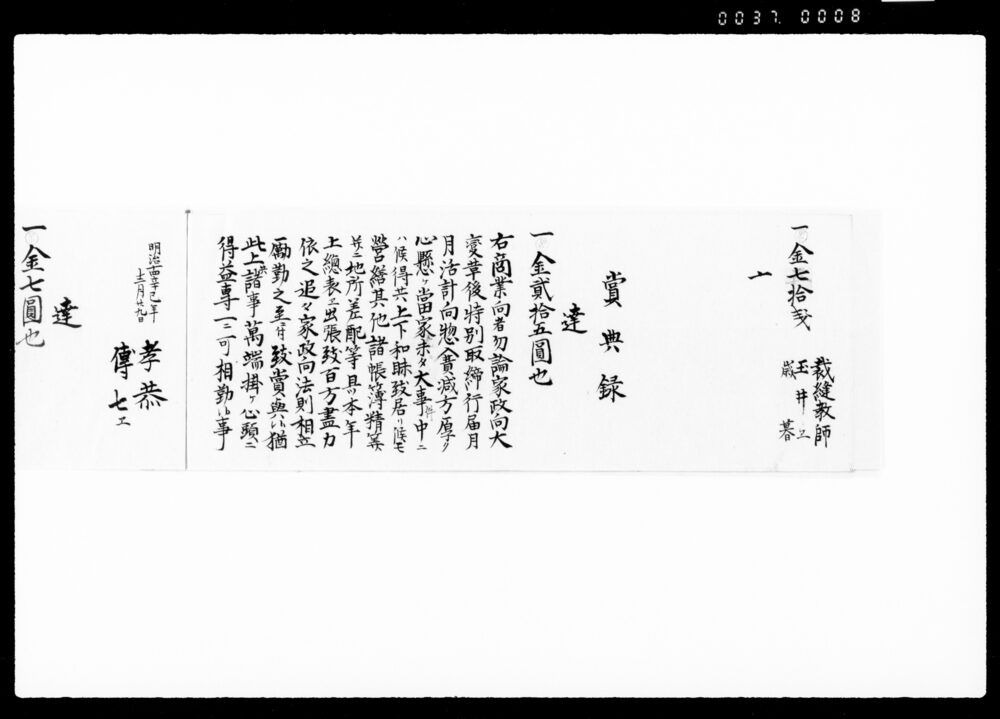 0037. 0008
一金七拾戔
裁縫教師
玉井エ
歳暮
一
賞典録
達
一金貳拾五圓也
右商業向者勿論家政向大
変革後特別取締行届月
月活計向惣入費减方厚ク
心懸ケ當家未タ大事件中ニ
ハ候得共上下和睦致居リ候モ
營繕其他諸帳簿精算
并ニ地所差配等且ツ本年
上總表エ出張致百方盡力
依之追々家政向法則相立
勵勤之至ニ付致賞與候猶
此上諸事萬端掛ケ心頭ニ
得益專一ニ可相勤候事
明治十四辛巳年
十二月廿九日
孝恭
傳七エ
達
一金七圓也